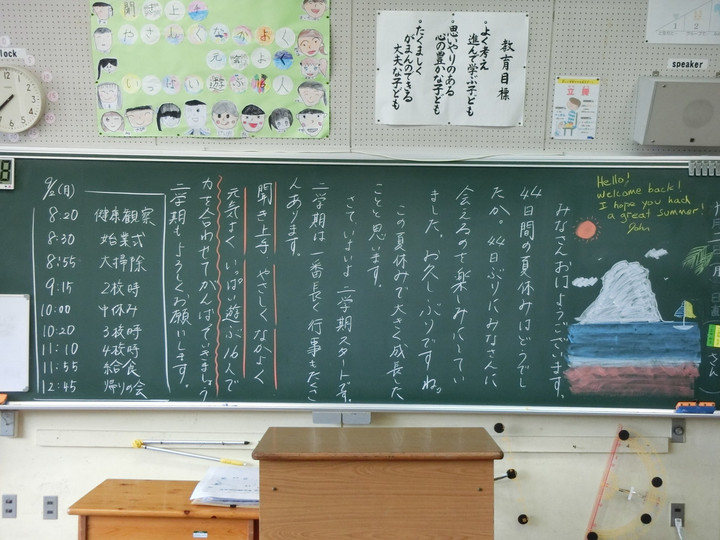 lock
聞き上手
やさしくなかよく
元気よく
いっぱい遊ぶ16人
教育目標
・よく考え
進んで学ぶ子ども
・思いやりのある
心の豊かな子ども
・たくましく
がまんのできる
丈夫な子ども
立腰
speaker
Hello!
Welcome back!
I hope you had
a great summer!
John
みなさんおはようございます。
44日間の夏休みはどうでし
たか。44日ぶりにみなさんに
会えるのを楽しみにしてい
ました。お久しぶりですね。
この夏休みで大きく成長した
ことと思います。
さて、いよいよ二学期スタートです。
二学期は一番長く行事もたくさ
んあります。
聞き上手 やさしくなかよく
元気よく いっぱい遊ぶ16人で
力を合わせてがんばっていきましょう
二学期もよろしくお願いします。
9/2(月)
8:20 健康観察
8:30 始業式
8:55 大掃除
9:15 2校時
10:00 中休み
10:20 3校時
11:10 4校時
11:55 給食
12:45 帰りの会
さん